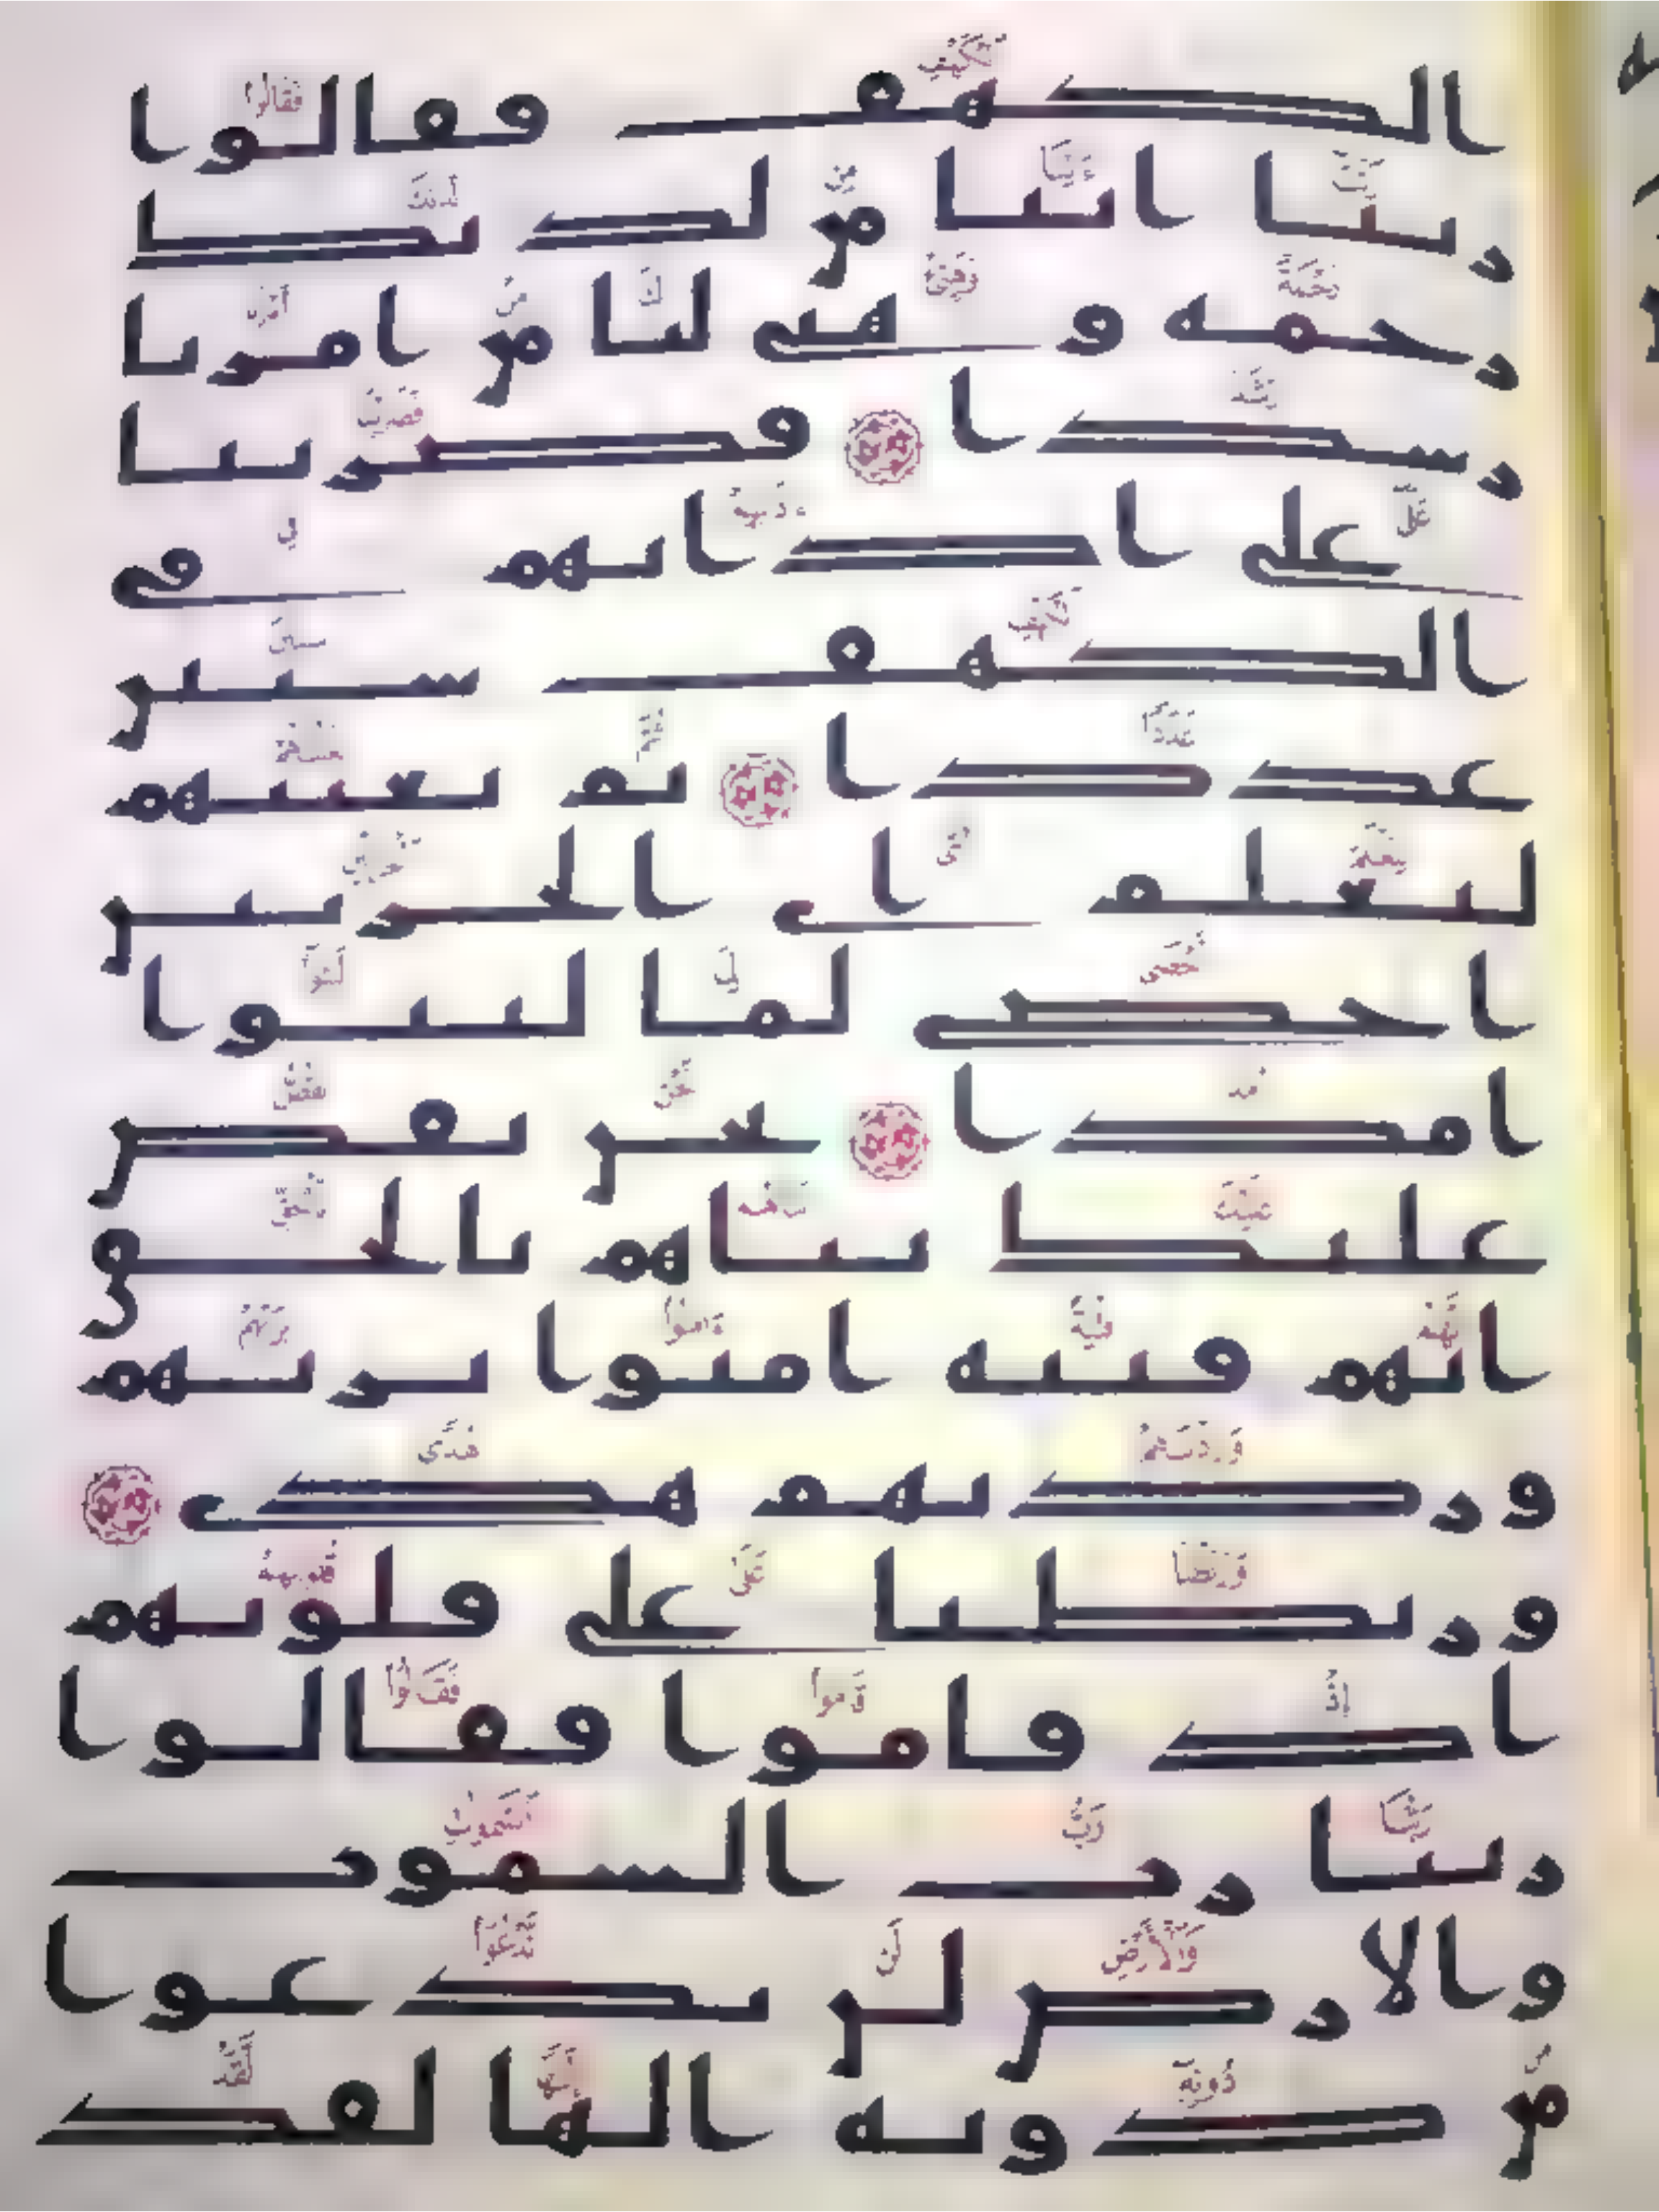 الكهف فقالوا
ربنا اتنا من لدنك
رحمة وهيى لنا من امرنا
رشدا فضربنا
على اذانهم في
الكهف سنين
عددا ثم بعثنهم
لنعلم اى الحزبين
احصى لما لبثوا
امدا نحن نقص
عليك نباهم بالحق
انهم فتية امنوا بربهم
وزدنهم هدى
وربطنا على قلوبهم
اذ قاموا فقالوا
ربنا رب السموت
والارض لن ندعوا
من دونه الها لقد